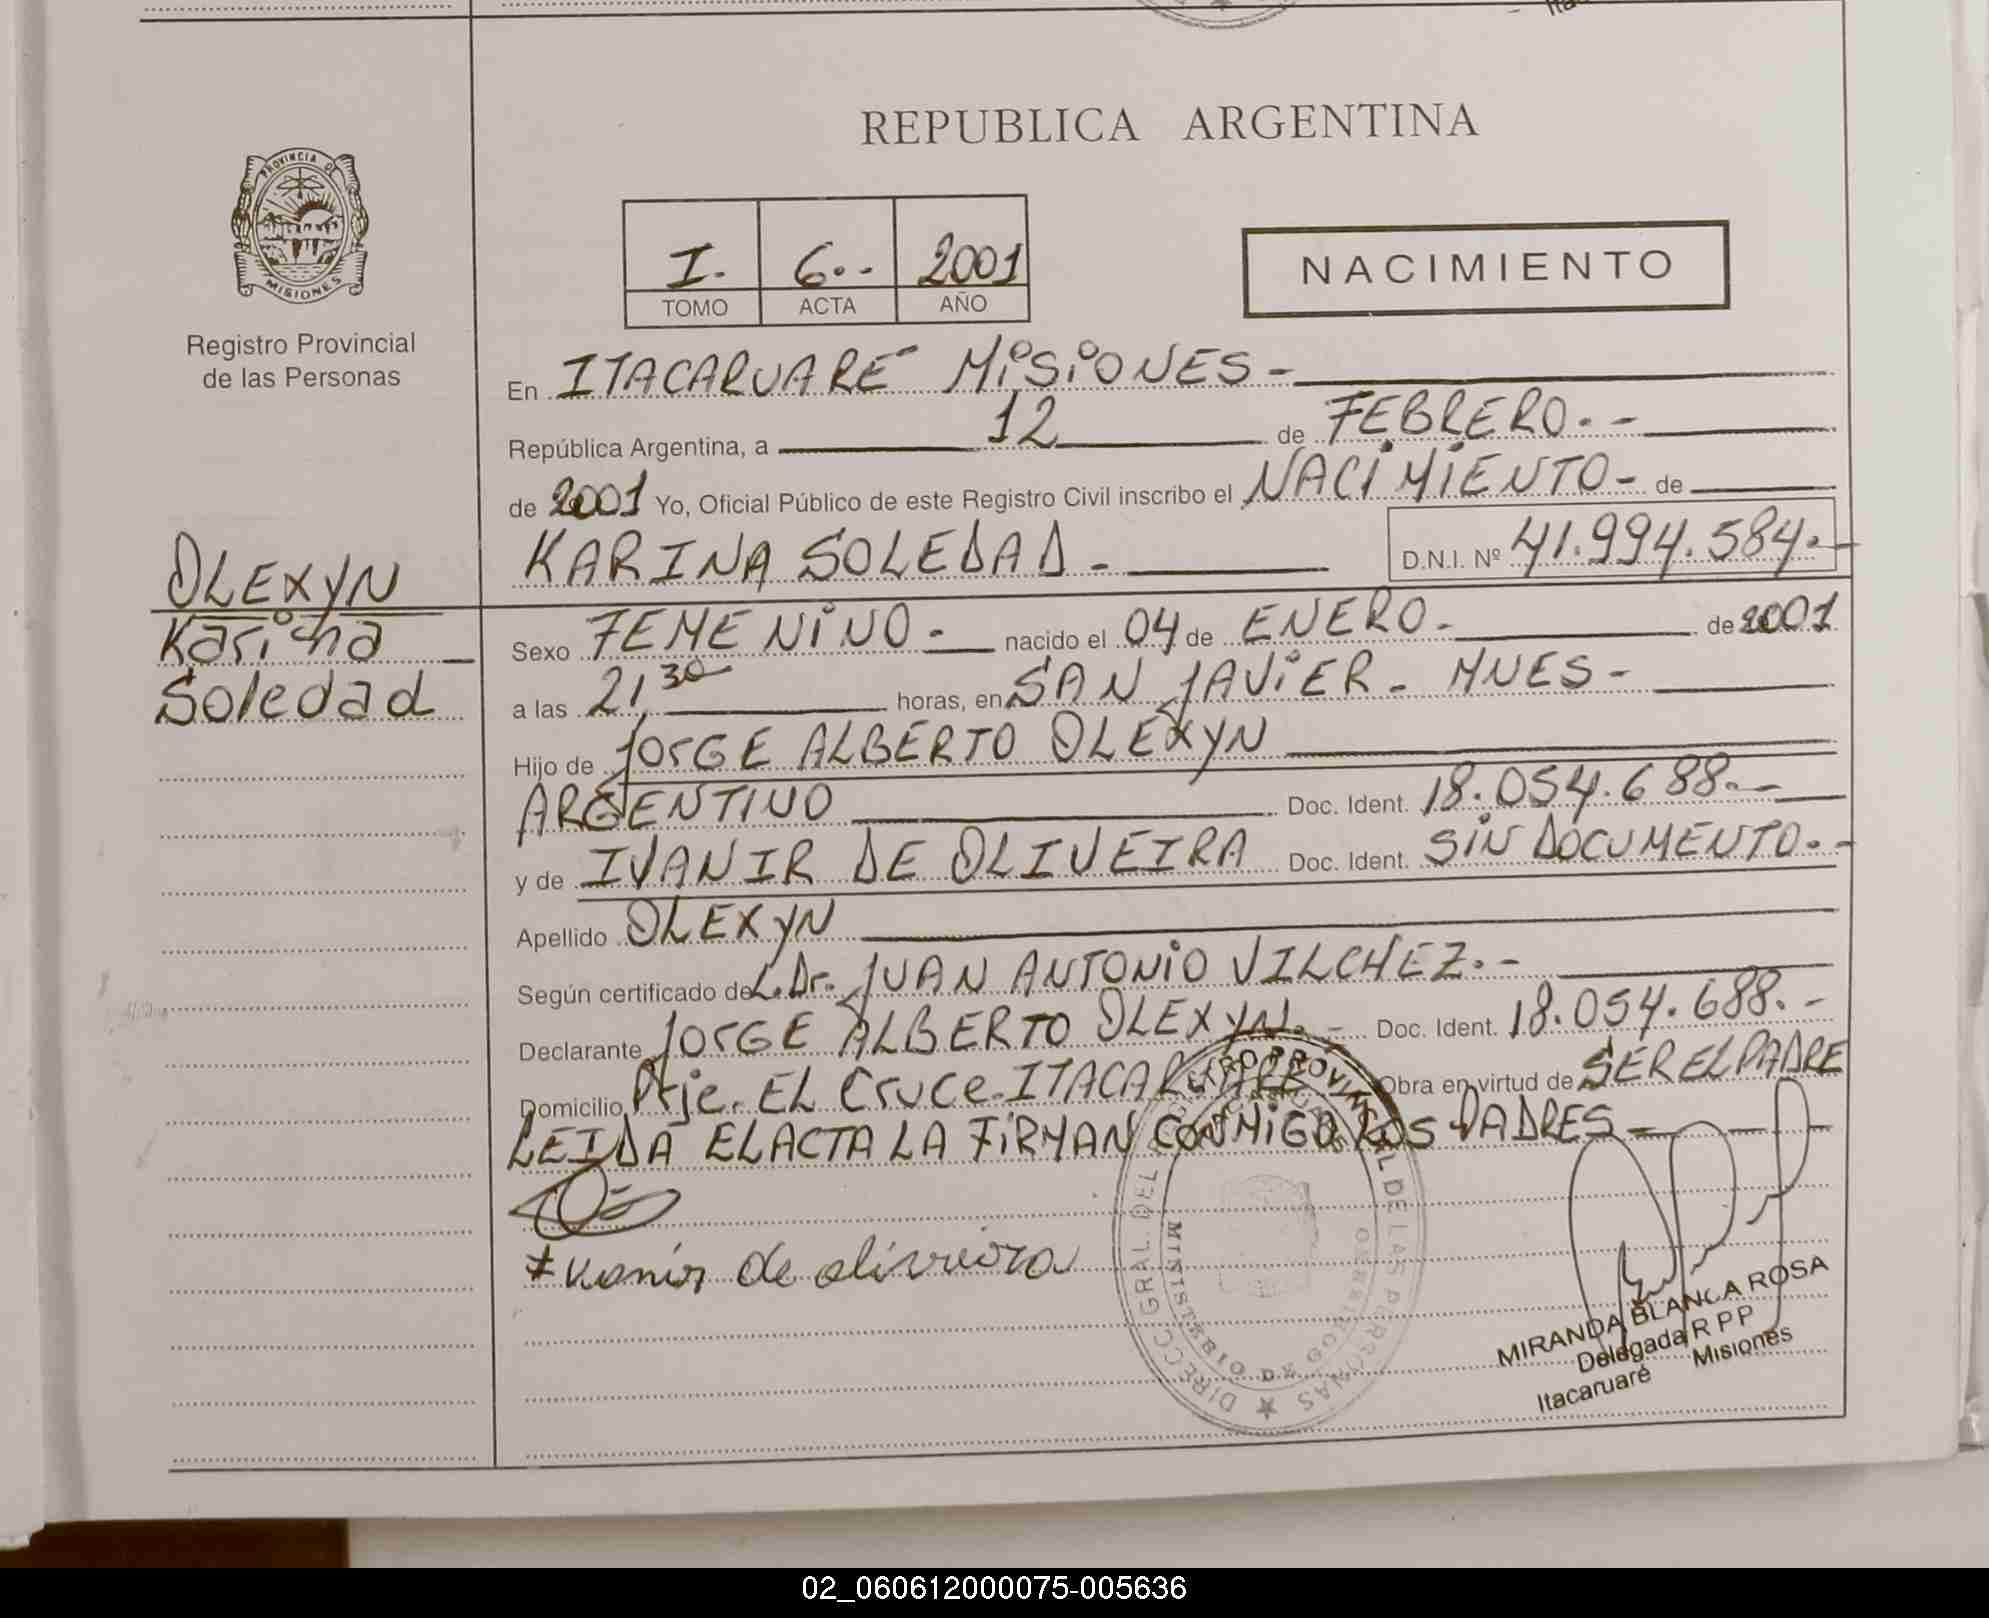 REPUBLICA ARGENTINA
PROVINCIA DE
MISIONES
Registro Provincial
de las Personas
I. 6.-- 2001
TOMO ACTA AÑO
NACIMIENTO
En ITACARUARÉ MISIONES -
República Argentina, a 12 de FEBRERO.-
de 2001 Yo, Oficial Público de este Registro Civil inscribo el NACIMIENTO- de
KARINA SOLEDAD - D.N.I. Nº 41.994.584.-
OLEXYN
Karina
Soledad
Sexo FEMENINO- nacido el 04 de ENERO- de 2001
a las 21,30 horas, en SAN JAVIER- MNES-
Hijo de JORGE ALBERTO OLEXYN
ARGENTINO Doc. Ident. 18.054.688.-
y de IVANIR DE OLIVEIRA Doc. Ident. SIN DOCUMENTO.-
Apellido OLEXYN
Según certificado de L.Dr. JUAN ANTONIO VILCHEZ.-
Declarante JORGE ALBERTO OLEXYN.- Doc. Ident. 18.054.688.-
Domicilio Prje. EL Cruce-ITACARUARE Obra en virtud de SER EL PADRE
LEIDA EL ACTA LA FIRMAN CONMIGO LOS PADRES-
de oliveira
DIRECC GRAL. DEL REGISTRO PROVINCIAL DE LAS PERSONAS
MINISTERIO DE GOBIERNO
MIRANDA BLANCA ROSA
Delegada R P P
Itacaruaré Misiones
02_060612000075-005636